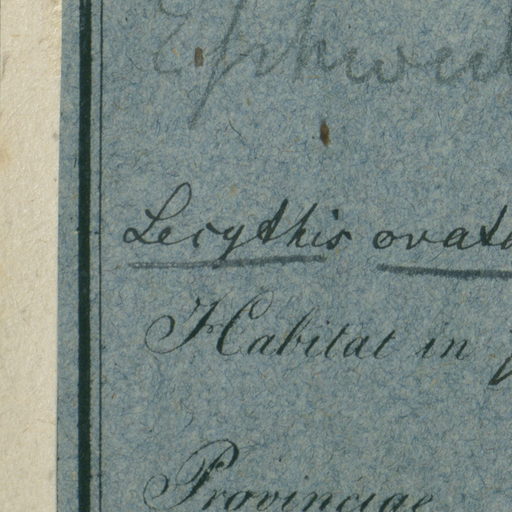 Lecythis ovata
Habitat in
Provinciae